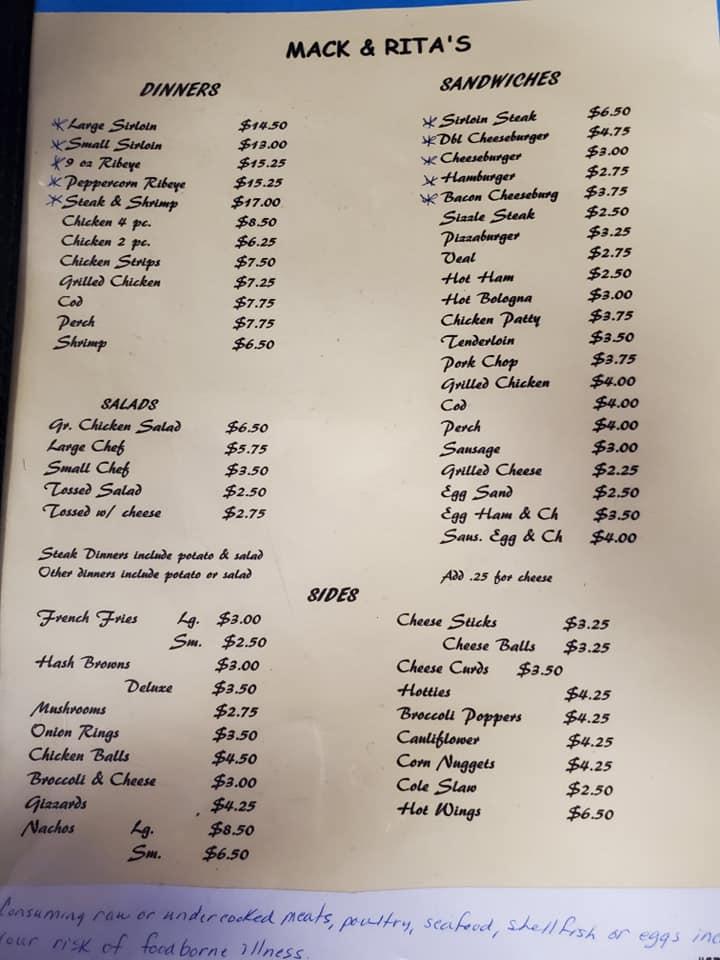 MACK & RITA'S
DINNERS
* Large Sirloin $14.50
* Small Sirloin $13.00
* 9 oz Ribeye $15.25
* Peppercorn Ribeye $15.25
* Steak & Shrimp $17.00
Chicken 4 pc. $8.50
Chicken 2 pc. $6.25
Chicken Strips $7.50
Grilled Chicken $7.25
Cod $7.75
Perch $7.75
Shrimp $6.50
SALADS
Gr. Chicken Salad $6.50
Large Chef $5.75
Small Chef $3.50
Tossed Salad $2.50
Tossed w/ cheese $2.75
Steak Dinners include potato & salad
Other dinners include potato or salad
SANDWICHES
* Sirloin Steak $6.50
* Dbl Cheeseburger $4.75
* Cheeseburger $3.00
* Hamburger $2.75
* Bacon Cheeseburg $3.75
Sizzle Steak $2.50
Pizzaburger $3.25
Veal $2.75
Hot Ham $2.50
Hot Bologna $3.00
Chicken Patty $3.75
Tenderloin $3.50
Pork Chop $3.75
Grilled Chicken $4.00
Cod $4.00
Perch $4.00
Sausage $3.00
Grilled Cheese $2.25
Egg Sand $2.50
Egg Ham & Ch $3.50
Saus. Egg & Ch $4.00
Add .25 for cheese
SIDES
French Fries Lg. $3.00
Sm. $2.50
Hash Browns $3.00
Deluxe $3.50
Mushrooms $2.75
Onion Rings $3.50
Chicken Balls $4.50
Broccoli & Cheese $3.00
Gizzards $4.25
Nachos Lg. $8.50
Sm. $6.50
Cheese Sticks $3.25
Cheese Balls $3.25
Cheese Curds $3.50
Hotties $4.25
Broccoli Poppers $4.25
Cauliflower $4.25
Corn Nuggets $4.25
Cole Slaw $2.50
Hot Wings $6.50
Consuming raw or undercooked meats, poultry, seafood, shellfish or eggs inc
your risk of foodborne illness.